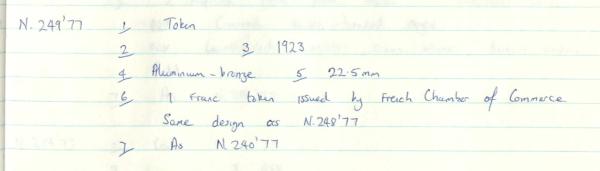 N. 249'77 1 Token
2 3 1923
4 Aluminium-bronze 5 22.5mm
6 1 Franc token issued by Freich Chamber of Commerce
Same design as N.248'77
7 As N.240'77